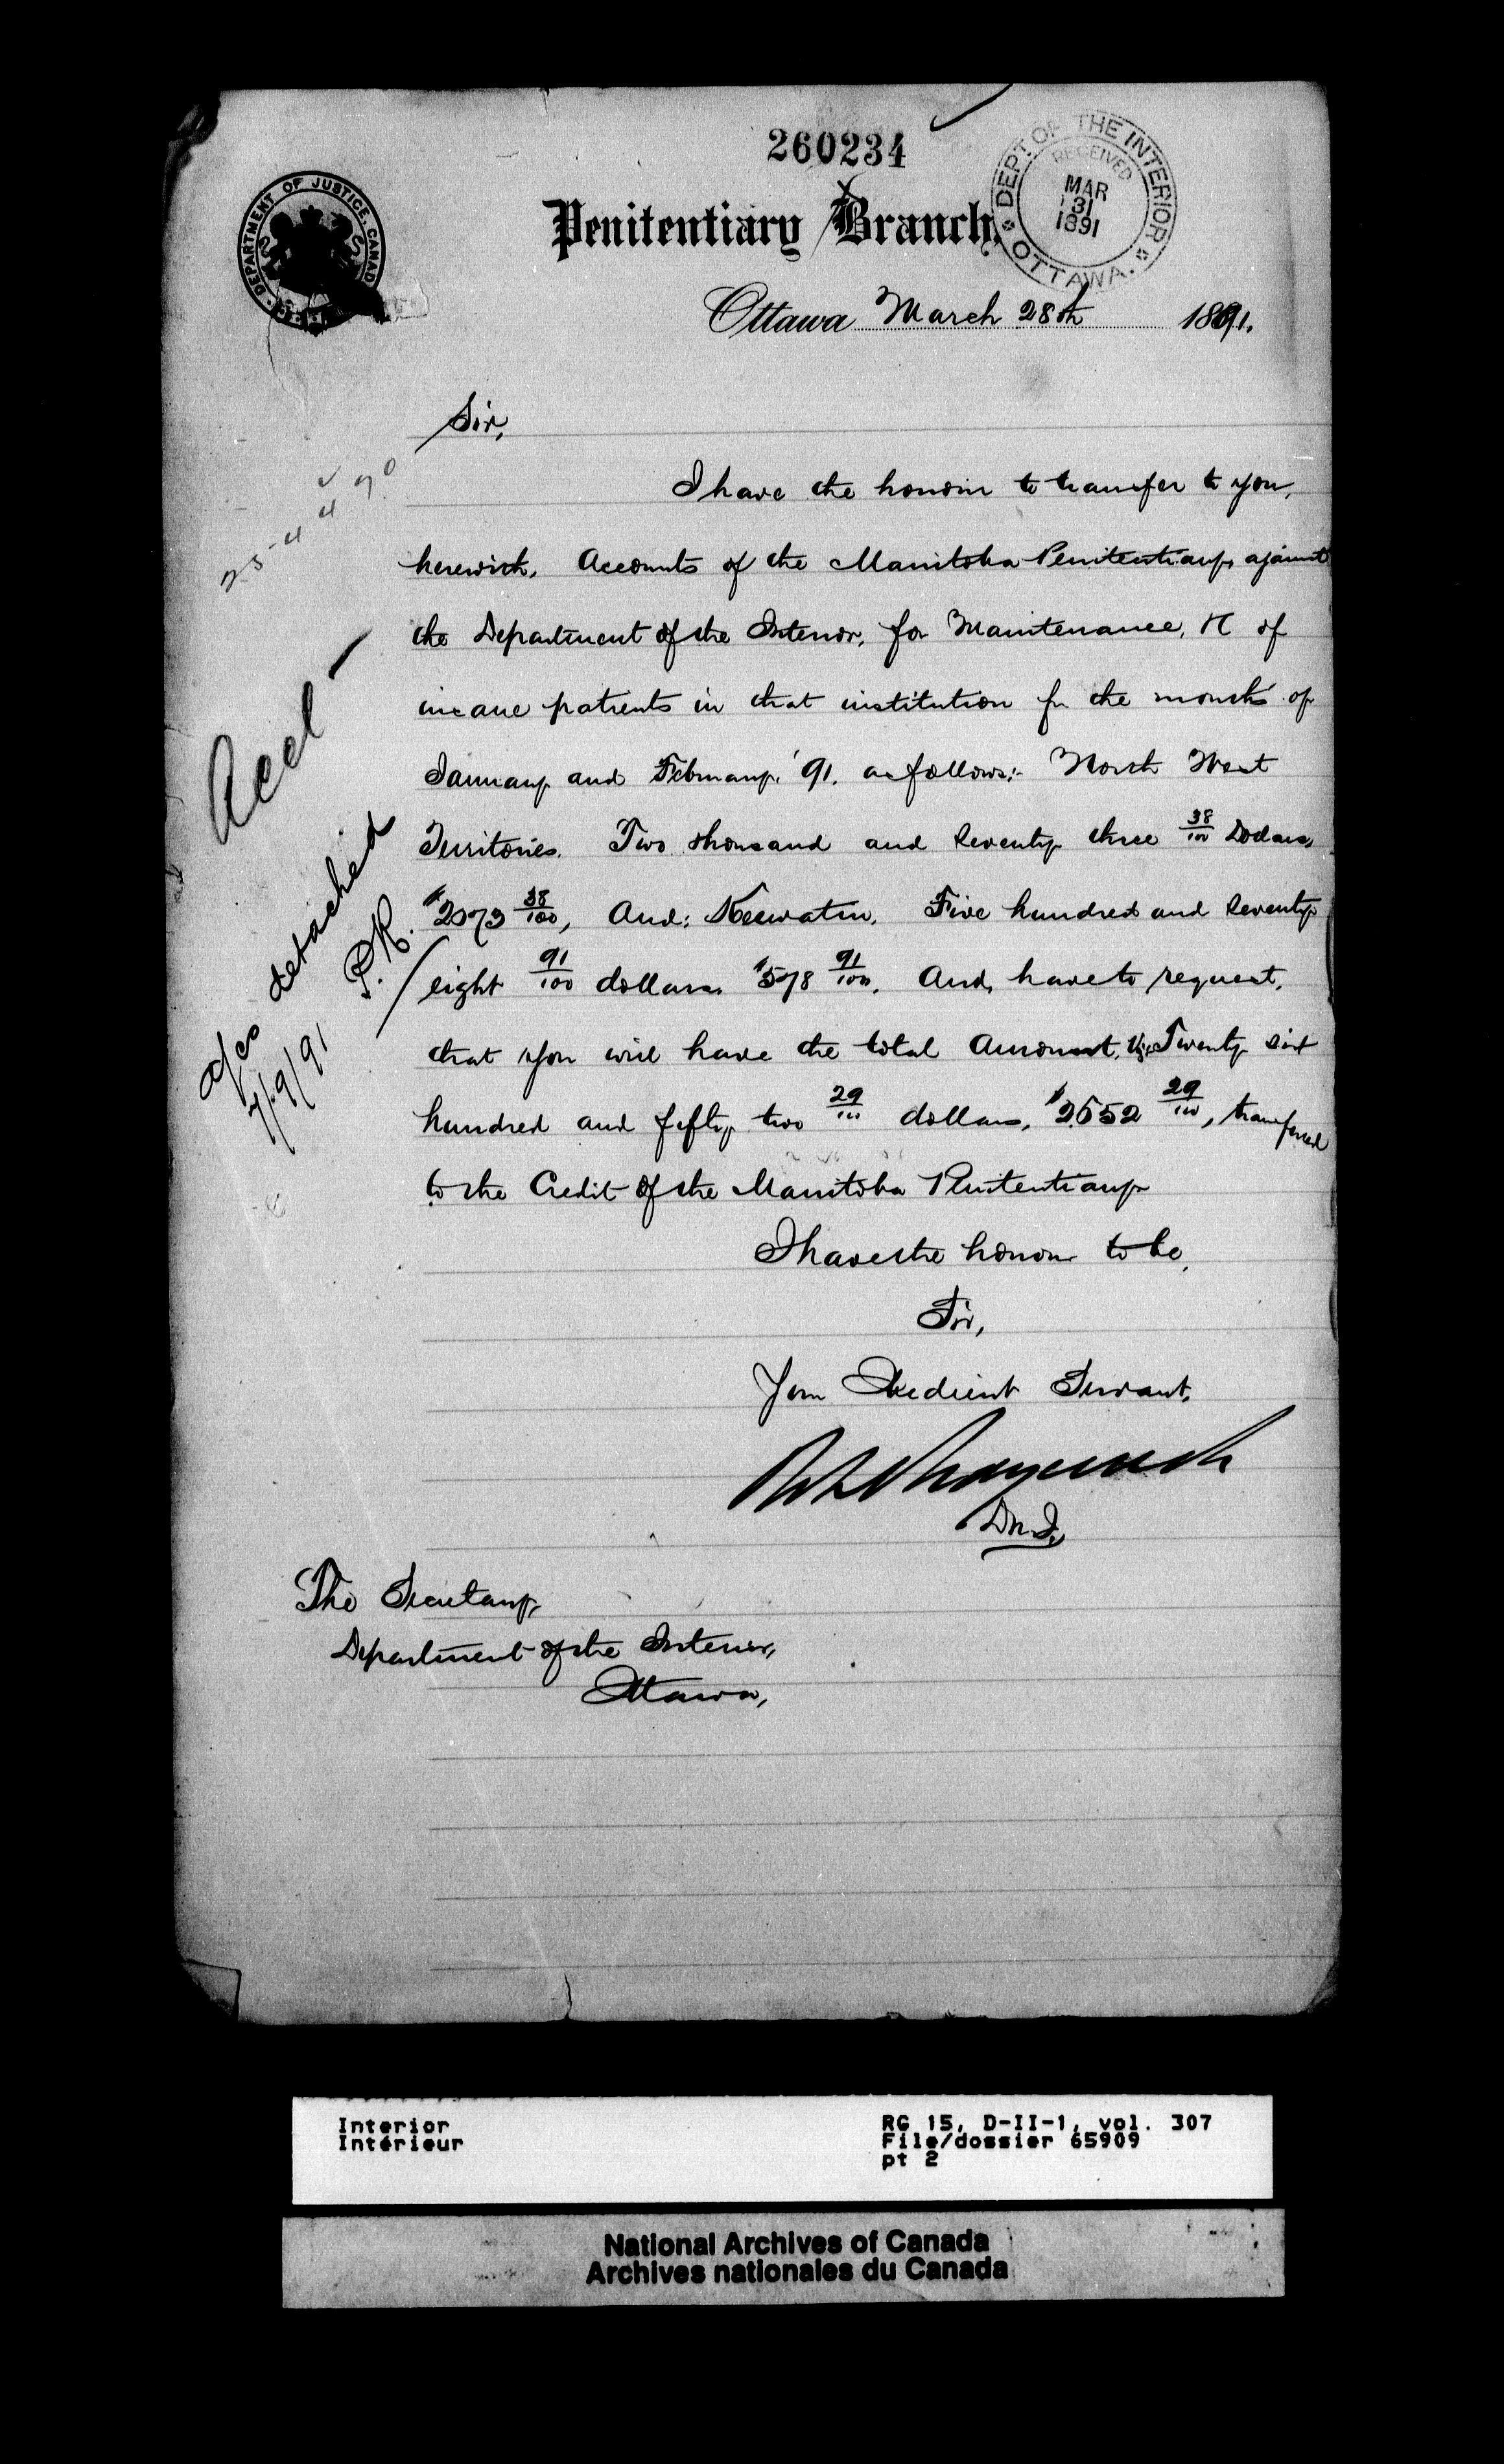 260234
DEPARTMENT OF JUSTICE, CANADA
Penitentiary Branch,
DEPT. OF THE INTERIOR
RECEIVED
MAR
31
1891
OTTAWA.
Ottawa March 28th 1891.
Sir,
I have the honour to transfer to you,
herewith, Accounts of the Manitoba Penitentiary, against
the Department of the Interior, for Maintenance, &c of
insane patients in that institution for the months of
January and February, '91, as follows:- North West
Territories. Two thousand and Seventy three 38/100 Dollars,
$2073 38/100, And: Keewatin. Five hundred and Seventy
eight 91/100 dollars $578 91/100. And, have to request,
that you will have the total Amount, viz Twenty six
hundred and fifty two 29/100 dollars, $2652 29/100, transferred
to the Credit of the Manitoba Penitentiary
I have the honour to be,
Sir,
Your Obedient Servant,
The Secretary,
Department of the Interior,
Ottawa,
Accl
a/cs detached
7/9/91 P.R.
Interior
Intérieur
RG 15, D-II-1, vol. 307
File/dossier 65909
pt 2
National Archives of Canada
Archives nationales du Canada